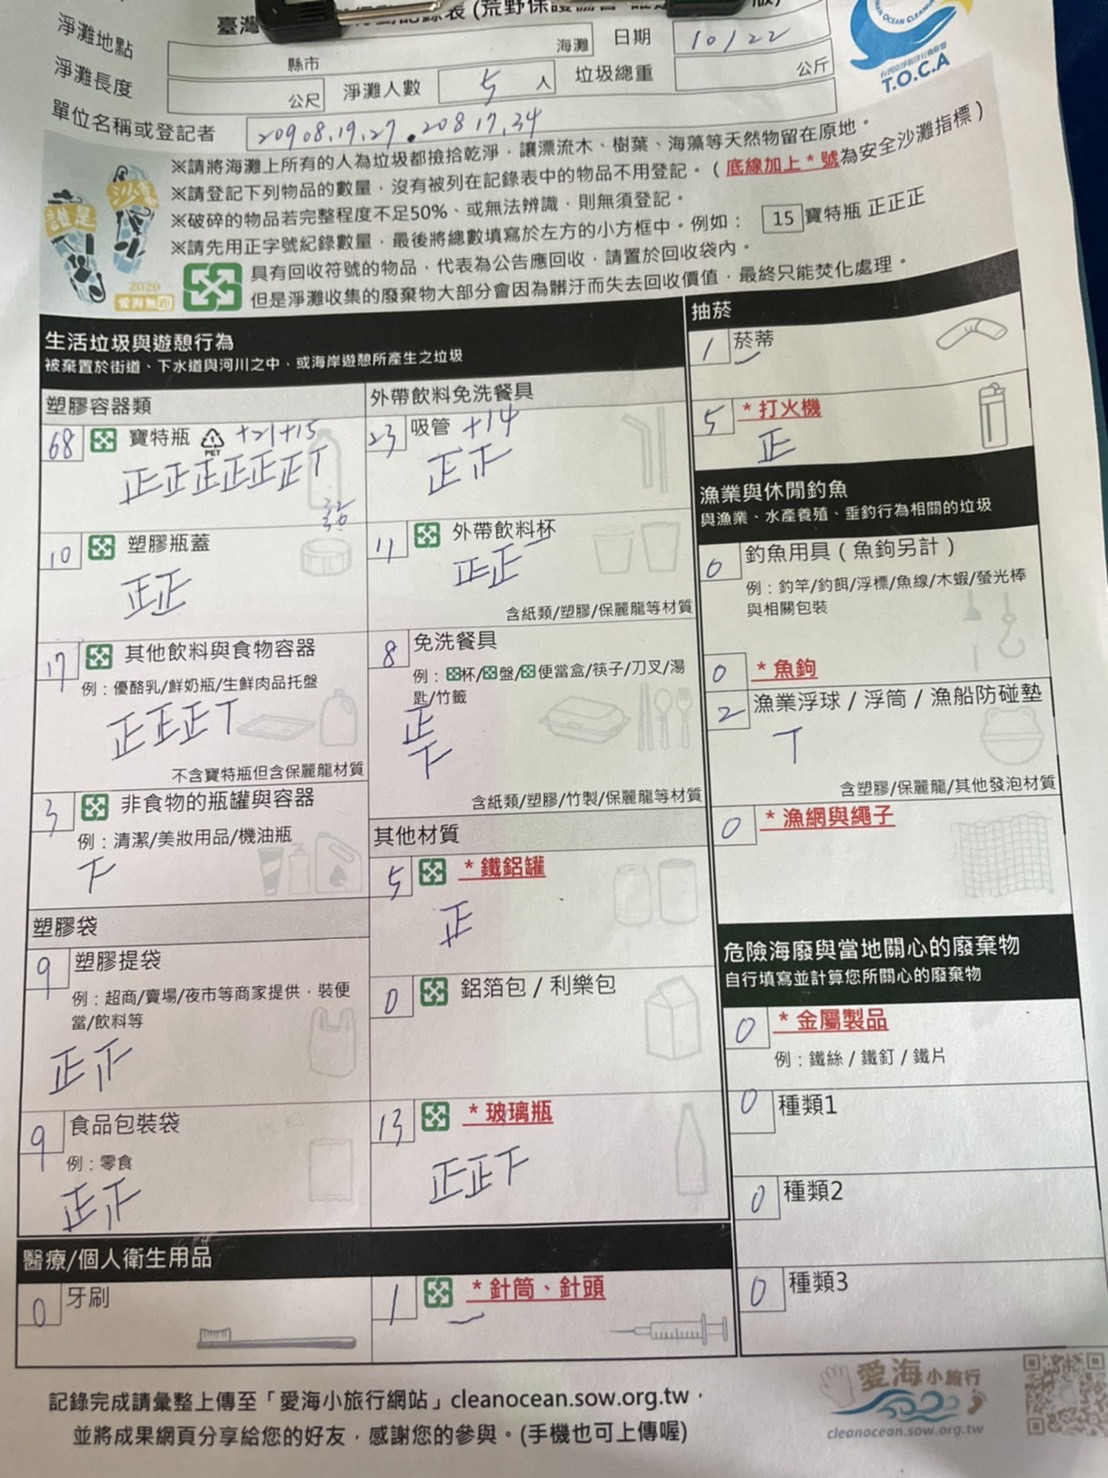 淨灘地點
縣市
海灘
日期
10/22
淨灘長度
公尺
淨灘人數
5
人
垃圾總重
公斤
單位名稱或登記者
20908.19.27. 20817.34
T.O.C.A
※請將海灘上所有的人為垃圾都撿拾乾淨，讓漂流木、樹葉、海藻等天然物留在原地。
※請登記下列物品的數量，沒有被列在記錄表中的物品不用登記。(底線加上*號為安全沙灘指標)
※破碎的物品若完整程度不足50%、或無法辨識，則無須登記。
※請先用正字號紀錄數量，最後將總數填寫於左方的小方框中。例如： 15 寶特瓶 正正正
具有回收符號的物品，代表為公告應回收，請置於回收袋內。
但是淨灘收集的廢棄物大部分會因為髒汙而失去回收價值，最終只能焚化處理。
誰是
沙
2020
生活垃圾與遊憩行為
被棄置於街道、下水道與河川之中，或海岸遊憩所產生之垃圾
塑膠容器類
68 寶特瓶 PET +21+15
正正正正正正丅
10 塑膠瓶蓋
正正
17 其他飲料與食物容器
例：優酪乳/鮮奶瓶/生鮮肉品托盤
正正正丅
不含寶特瓶但含保麗龍材質
3 非食物的瓶罐與容器
例：清潔/美妝用品/機油瓶
下
塑膠袋
9 塑膠提袋
例：超商/賣場/夜市等商家提供，裝便
當/飲料等
9 食品包裝袋
例：零食
外帶飲料免洗餐具
23 吸管 +14
11 外帶飲料杯
正正一
含紙類/塑膠/保麗龍等材質
8 免洗餐具
例：杯/盤/便當盒/筷子/刀叉/湯
匙/竹籤
正
下
含紙類/塑膠/竹製/保麗龍等材質
其他材質
5 *鐵鋁罐
正
0 鋁箔包 / 利樂包
13 *玻璃瓶
正正下
醫療/個人衛生用品
0 牙刷
1 *針筒、針頭
一
抽菸
1 菸蒂
一
5 *打火機
正
漁業與休閒釣魚
與漁業、水產養殖、垂釣行為相關的垃圾
0 釣魚用具（魚鉤另計）
例：釣竿/釣餌/浮標/魚線/木蝦/螢光棒
與相關包裝
0 *魚鉤
2 漁業浮球 / 浮筒 / 漁船防碰墊
丅
含塑膠/保麗龍/其他發泡材質
0 *漁網與繩子
危險海廢與當地關心的廢棄物
自行填寫並計算您所關心的廢棄物
0 *金屬製品
例：鐵絲 / 鐵釘 / 鐵片
0 種類1
0 種類2
0 種類3
記錄完成請彙整上傳至「愛海小旅行網站」cleanocean.sow.org.tw，
並將成果網頁分享給您的好友，感謝您的參與。(手機也可上傳喔)
愛海小旅行
cleanocean.sow.org.tw